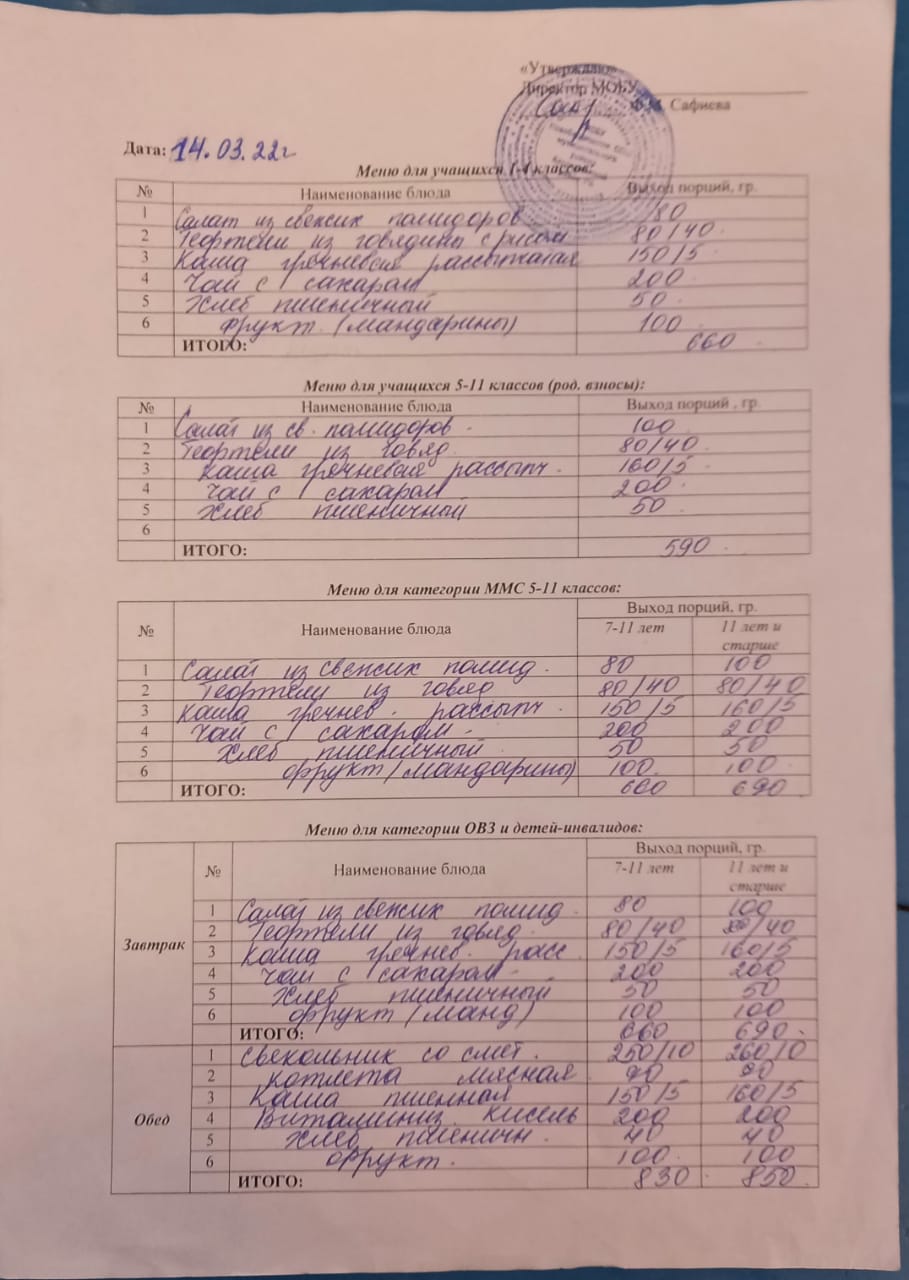 «Утверждаю»
Директор МОБУ
Сафиева
Дата: 14.03.22г
Меню для учащихся 1-4 классов:
№ Наименование блюда Выход порций, гр.
1 Салат из свежих помидоров 80
2 Тефтели из говядины с рисом 80/40
3 Каша гречневая рассыпчатая 150/5
4 Чай с сахаром 200
5 Хлеб пшеничный 50
6 фрукт (мандарины) 100
ИТОГО: 660
Меню для учащихся 5-11 классов (род. взносы):
№ Наименование блюда Выход порций , гр.
1 Салат из св. помидоров 100
2 Тефтели из говяд. 80/40
3 Каша гречневая рассыпч. 160/5
4 Чай с сахаром 200
5 Хлеб пшеничный 50
6
ИТОГО: 590
Меню для категории ММС 5-11 классов:
№ Наименование блюда Выход порций, гр.
7-11 лет 11 лет и старше
1 Салат из свежих помид. 80 100
2 Тефтели из говяд 80/40 80/40
3 Каша гречнев. рассыпч. 150/5 160/5
4 Чай с сахаром 200 200
5 Хлеб пшеничный 50 50
6 фрукт (мандарины) 100 100
ИТОГО: 660 690
Меню для категории ОВЗ и детей-инвалидов:
№ Наименование блюда Выход порций, гр.
7-11 лет 11 лет и старше
Завтрак
1 Салат из свежих помид. 80 100
2 Тефтели из говяд. 80/40 80/40
3 Каша гречнев. расс 150/5 160/5
4 Чай с сахаром 200 200
5 Хлеб пшеничный 50 50
6 фрукт (манд) 100 100
ИТОГО: 660 690
Обед
1 Свекольник со смет. 250/10 260/10
2 котлета мясная 90 90
3 Каша пшенная 150/5 160/5
4 Витаминиз. кисель 200 200
5 Хлеб пшеничн. 40 40
6 фрукт. 100 100
ИТОГО: 830 850